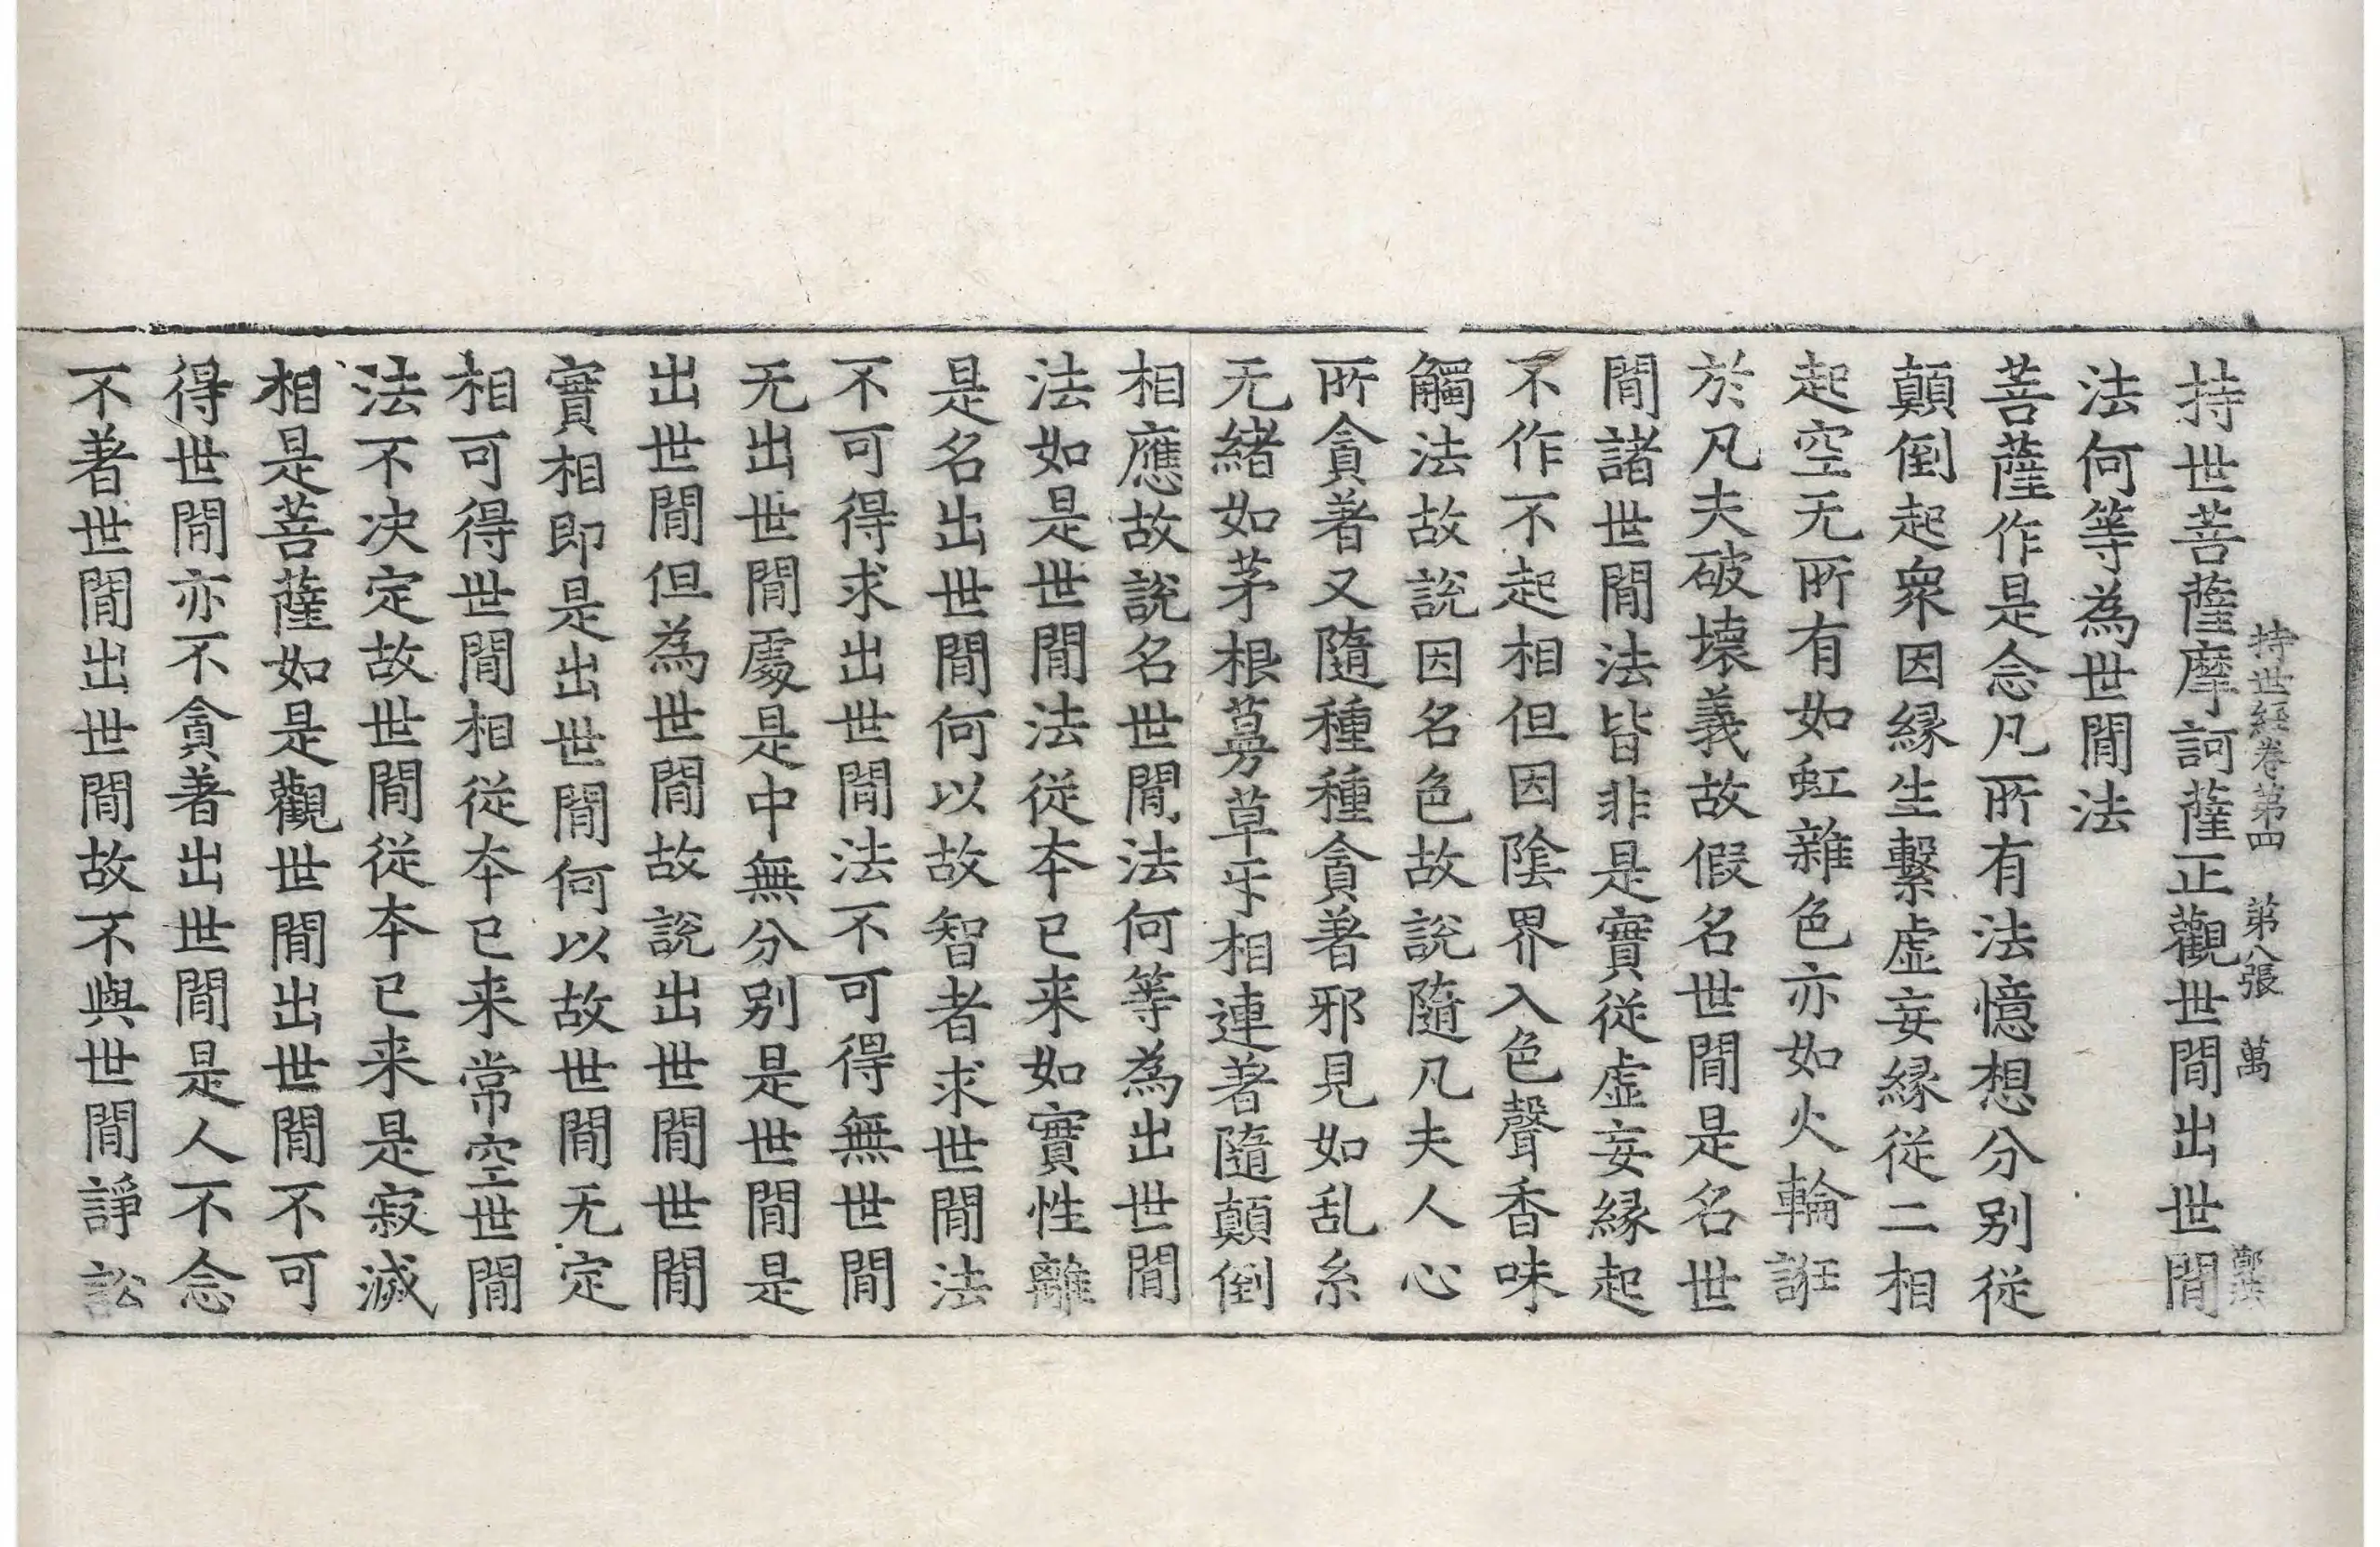 持世經卷第四　第八張　萬
持世菩薩摩訶薩正觀世閒出世閒
法何等為世閒法
菩薩作是念凡所有法憶想分別從
顛倒起衆因緣生繫虛妄緣從二相
起空无所有如虹雜色亦如火輪誑
於凡夫破壞義故假名世閒是名世
閒諸世閒法皆非是實從虛妄緣起
不作不起相但因陰界入色聲香味
觸法故說因名色故說隨凡夫人心
所貪著又隨種種貪著邪見如乱糸
无緒如茅根蔓草㸦相連著隨顛倒
相應故說名世閒法何等為出世閒
法如是世閒法從夲已来如實性離
是名出世閒何以故智者求世閒法
不可得求出世閒法不可得無世閒
无出世閒處是中無分別是世閒是
出世閒但為世閒故說出世閒世閒
實相即是出世閒何以故世閒无定
相可得世閒相從夲已来常空世閒
法不决定故世閒從夲已来是寂滅
相是菩薩如是觀世閒出世閒不可
得世閒亦不貪著出世閒是人不念
不著世閒出世閒故不與世閒諍訟